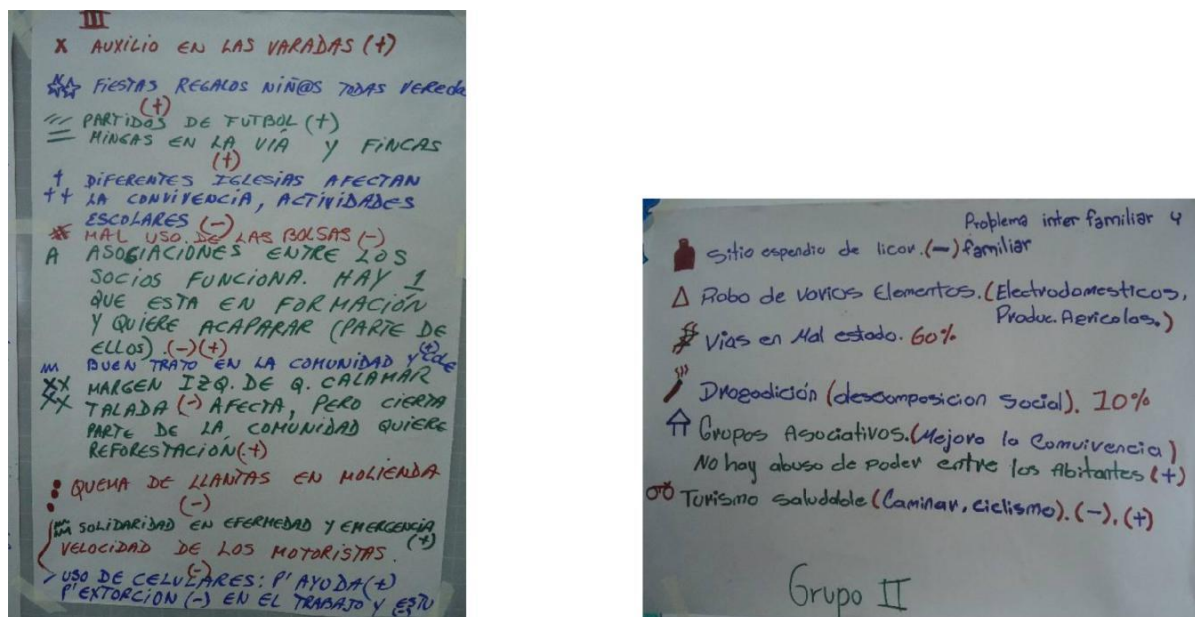 III
X AUXILIO EN LAS VARADAS (+)
FIESTAS REGALOS NIÑ@S TODAS VEREDA
(+)
PARTIDOS DE FUTBOL (+)
MINGAS EN LA VIÁ Y FINCAS
(+)
DIFERENTES IGLESIAS AFECTAN
LA CONVIVENCIA, ACTIVIDADES
ESCOLARES (-)
MAL USO DE LAS BOLSAS (-)
A ASOCIACIONES ENTRE LOS
SOCIOS FUNCIONA. HAY 1
QUE ESTA EN FORMACIÓN
Y QUIERE ACAPARAR (PARTE DE
ELLOS) (-)(+)
BUEN TRATO EN LA COMUNIDAD Y COLE (+)
XX MARGEN IZQ. DE Q. CALAMAR
XX TALADA (-) AFECTA, PERO CIERTA
PARTE DE LA COMUNIDAD QUIERE
REFORESTACIÓN (+)
QUEMA DE LLANTAS EN MOLIENDA
(-)
SOLIDARIDAD EN EFERMEDAD Y EMERGENCIA
(+)
VELOCIDAD DE LOS MOTORISTAS.
(-)
USO DE CELULARES: P' AYUDA (+)
P' EXTORCION (-) EN EL TRABAJO Y ESTU
(-)
Problema inter familiar y
Sitio espendio de licor. (-) familiar
Robo de varios Elementos. (Electrodomesticos,
Produc. Agricolas.)
Vias en Mal estado. 60%
Drogadición (descomposicion Social). 10%
Grupos Asociativos. (Mejora la Comvivencia)
No hay abuso de poder entre los Abitantes (+)
Turismo saludable (Caminar, ciclismo). (-), (+)
Grupo II